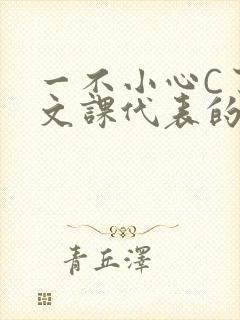 一不小心C
文課代表的
青丘澤